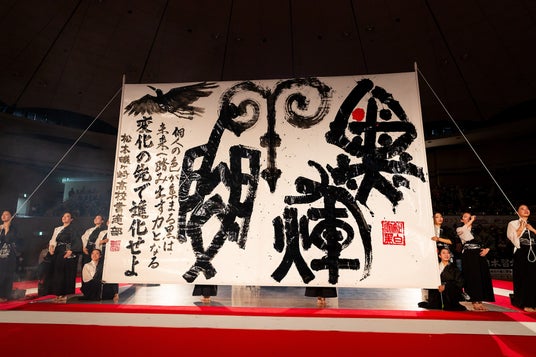 黒輝
個人の色が集まる黒は
未来へ踏み出す力となる
変化の先で進化せよ
松本蟻ヶ崎高校書道部